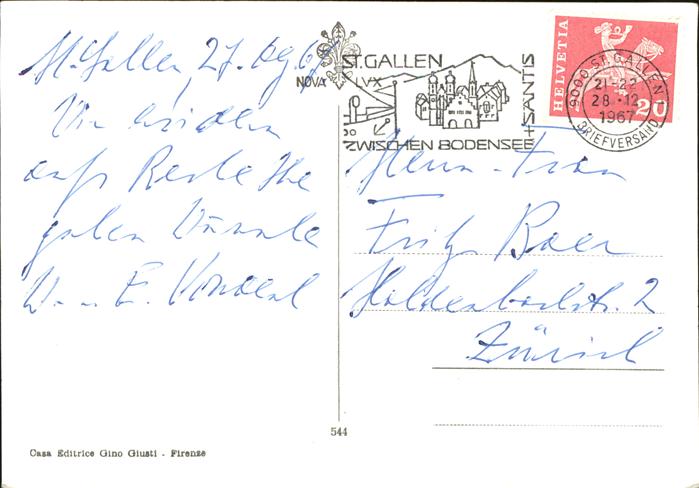 St. Gallen, 27. Dez. 67
Wir erwidern
aufs Beste Ihre
guten Wünsche
W. u. E.
NOVA LVX
ST. GALLEN
ZWISCHEN BODENSEE + SÄNTIS
HELVETIA
20
9000 ST. GALLEN 1
21-22
28.-12.
1967
BRIEFVERSAND
Herrn - Frau
Fritz Baer
Haldenbachstr. 2
Zürich
544
Casa Editrice Gino Giusti - Firenze